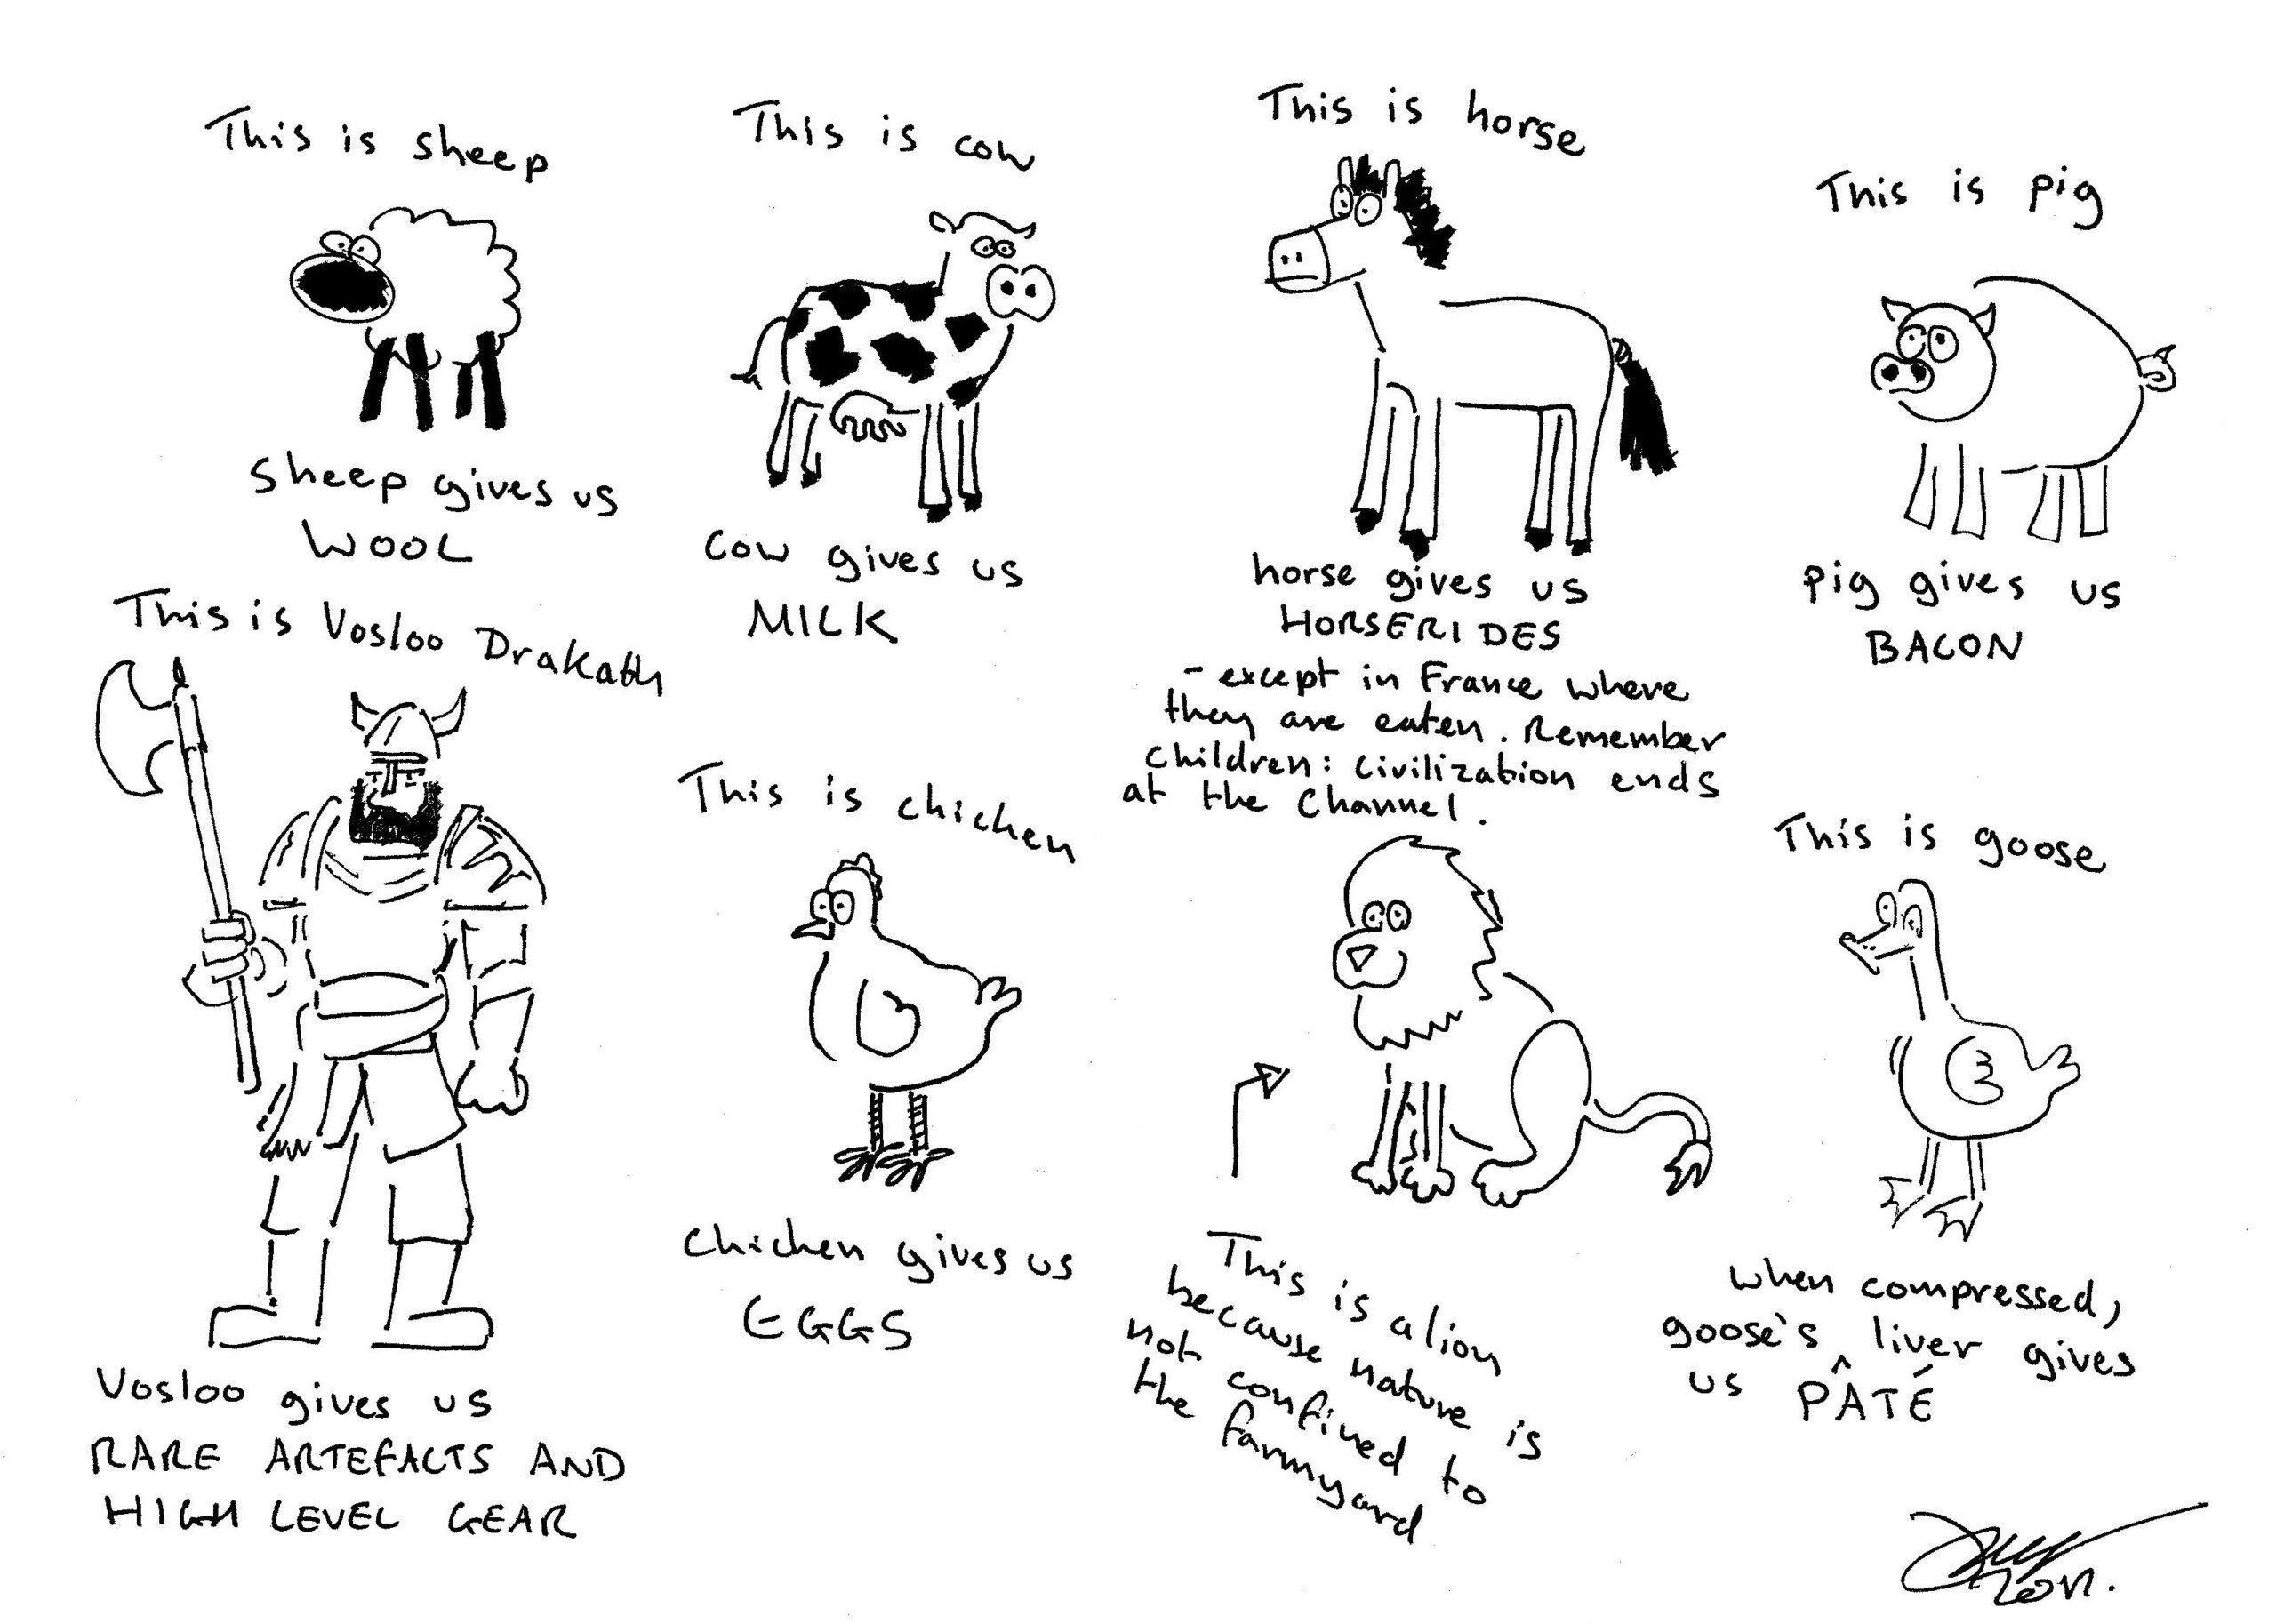 This is sheep
sheep gives us
WOOL
This is cow
cow gives us
MILK
This is horse
horse gives us
HORSERIDES
- except in France where
they are eaten. Remember
children: civilization ends
at the Channel.
This is pig
pig gives us
BACON
This is Vosloo Drakath
Vosloo gives us
RARE ARTEFACTS AND
HIGH LEVEL GEAR
This is chicken
chicken gives us
EGGS
This is a lion
because nature is
not confined to
the farmyard
This is goose
when compressed,
goose's liver gives
us PÂTÉ